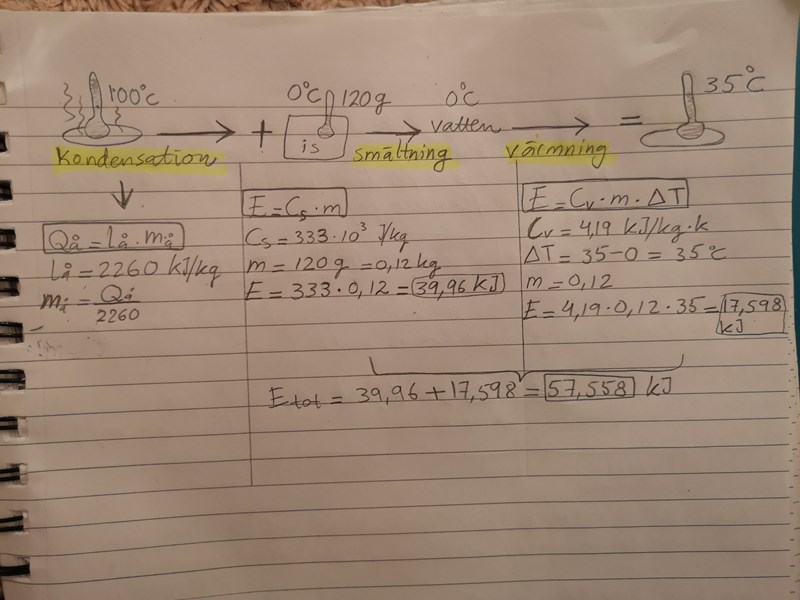 100°C
0°C 120g
0°C
35°C
+ is vatten =
kondensation smältning värmning
Qå = lå · må
lå = 2260 kJ/kg
må = Qå/2260
E = Cs · m
Cs = 333 · 10³ J/kg
m = 120 g = 0,12 kg
E = 333 · 0,12 = 39,96 kJ
E = Cv · m · ΔT
Cv = 4,19 kJ/kg·k
ΔT = 35-0 = 35°C
m = 0,12
E = 4,19 · 0,12 · 35 = 17,598
kJ
Etot = 39,96 + 17,598 = 57,558 kJ